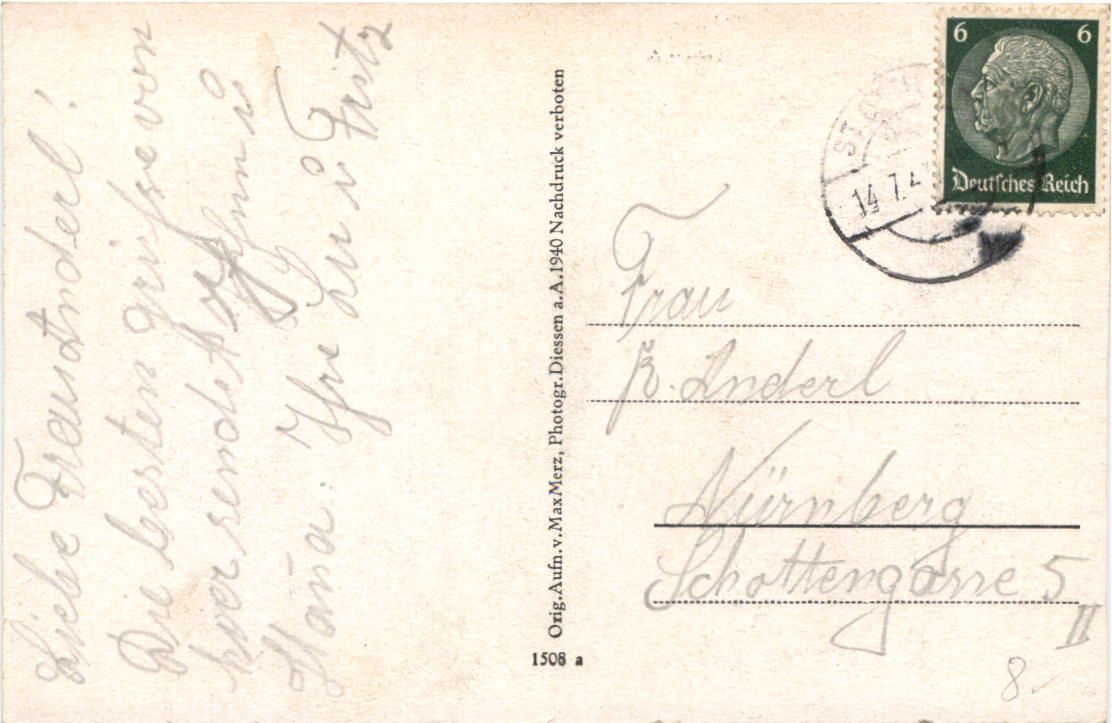 Liebe Frau Anderl!
Die besten grüsse von
hier sendet
Ihre Lu u Fritz
Orig.Aufn.v.Max Merz, Photogr.Diessen a.A.1940 Nachdruck verboten
1508 a
6 6
Deutsches Reich
14.7.4
Frau
B. Anderl
Nürnberg
Schottengasse 5
II
8.-